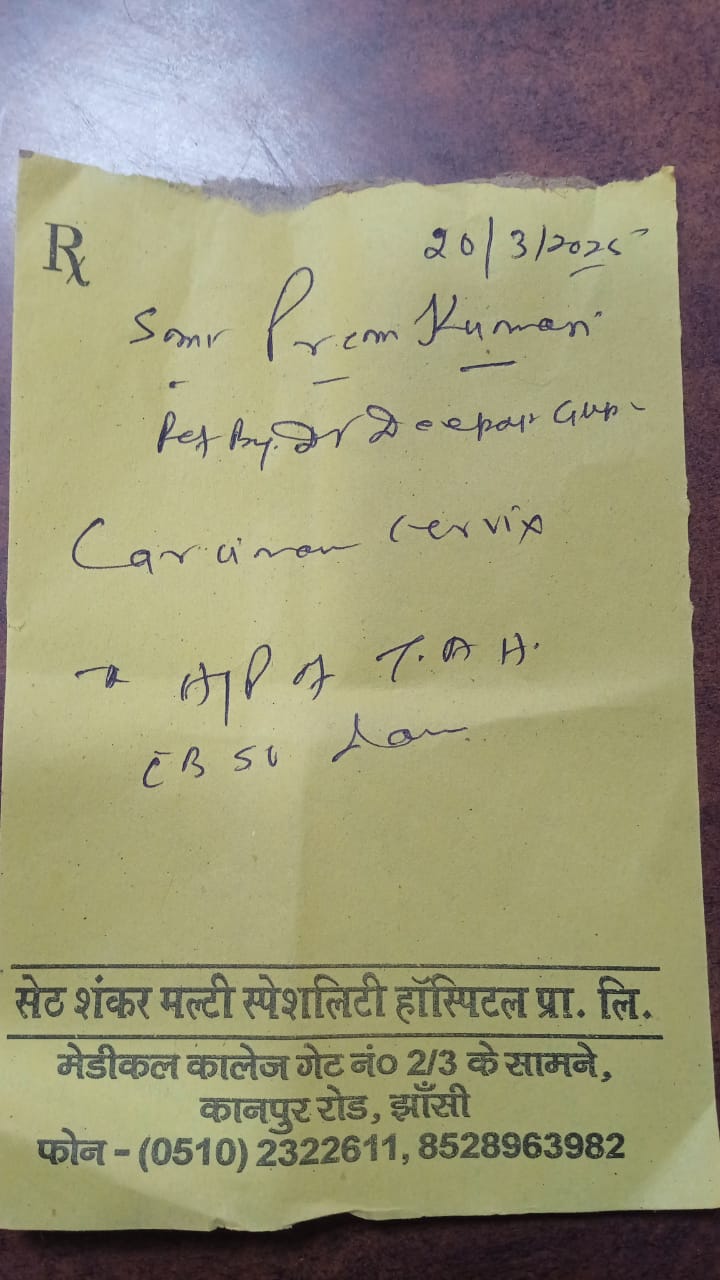 Rx
20/3/2025
Smr Prem Kumari
Ref By. Dr Deepak Gup
Carcinoma Cervix
→ H/P of T.A.H.
c̄ BSO
सेठ शंकर मल्टी स्पेशलिटी हॉस्पिटल प्रा. लि.
मेडीकल कालेज गेट नं० 2/3 के सामने,
कानपुर रोड, झाँसी
फोन - (0510) 2322611, 8528963982